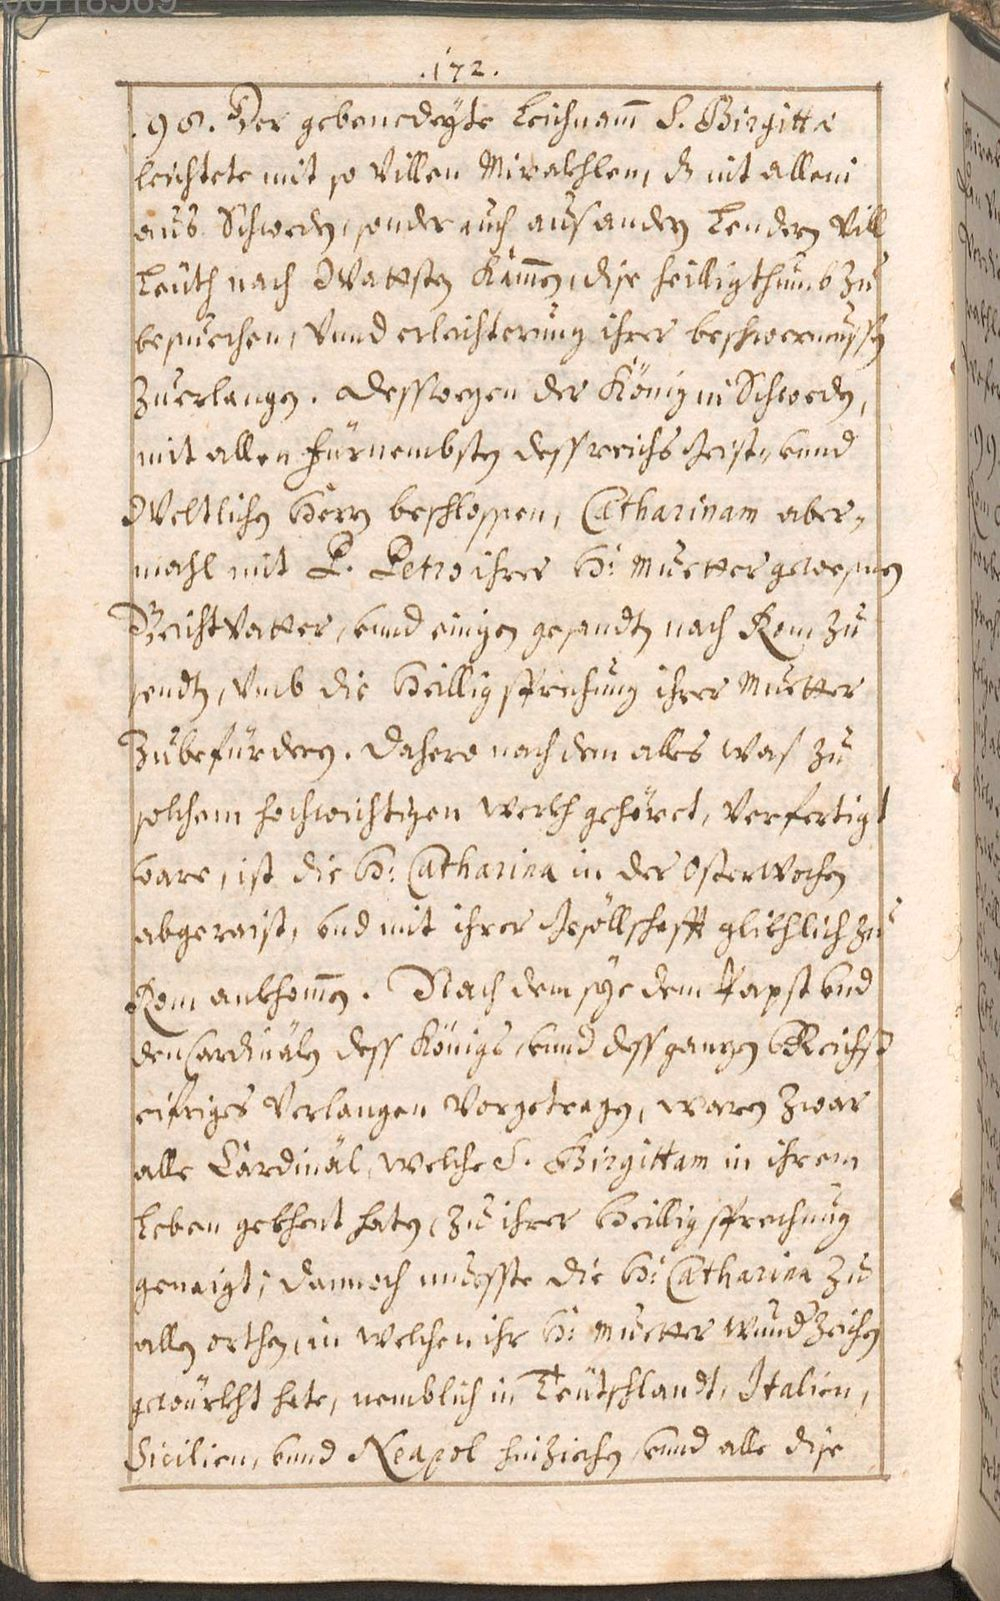 .172.
.98. Der gebenedeÿte Leichnam̅ S. Birgittæ
leichtete mit so Villen Miraklen, dz nit allein
aus Schweden, sonder auch aus andern Lendern Vill
Leuth nach Wattsten Kam̅en, dise heilligthumb zu
besuechen, Vnnd erleichterung ihrer beschwernussen
Zuerlangen. Desswegen der König in Schweden,
mit allen fürnembsten dess reichs Geist= vnnd
Weltlichen Herrn beschlossen, Catharinam aber=
mahl mit P. Petro ihrer H: Muetter gewesnen
BeichtVatter, vnnd einigen gesandten nach Rom zu
senden, Vmb die Heilligsprechung ihrer Muetter
Zubefürdern. Dahero nach dem alles was zu
solchem hochwichtigen werkh gehöret, Verfertigt
ware, ist die H: Catharina in der OsterWochen
abgeraist, vnd mit ihrer Gesöllschafft glikhlich zu
Rom ankhom̅en. Nach dem sÿe dem Papst vnd
den Cardinälen dess Königs, vnnd dess ganzen Reichs
eifriges Verlangen Vorgetragen, waren zwar
alle Cardinäl, welche S. Birgittam in ihrem
Leben gekhent haten, zu ihrer Heilligsprechung
genaigt; dannoch muesste die H: Catharina zu
allen orthen, in welchen ihr H: Muetter WundZeichen
gewürkht hate, nemblich in Teütschlandt, Italien,
Sicilien, vnnd Neapol hinZiechen, vnnd alle dise